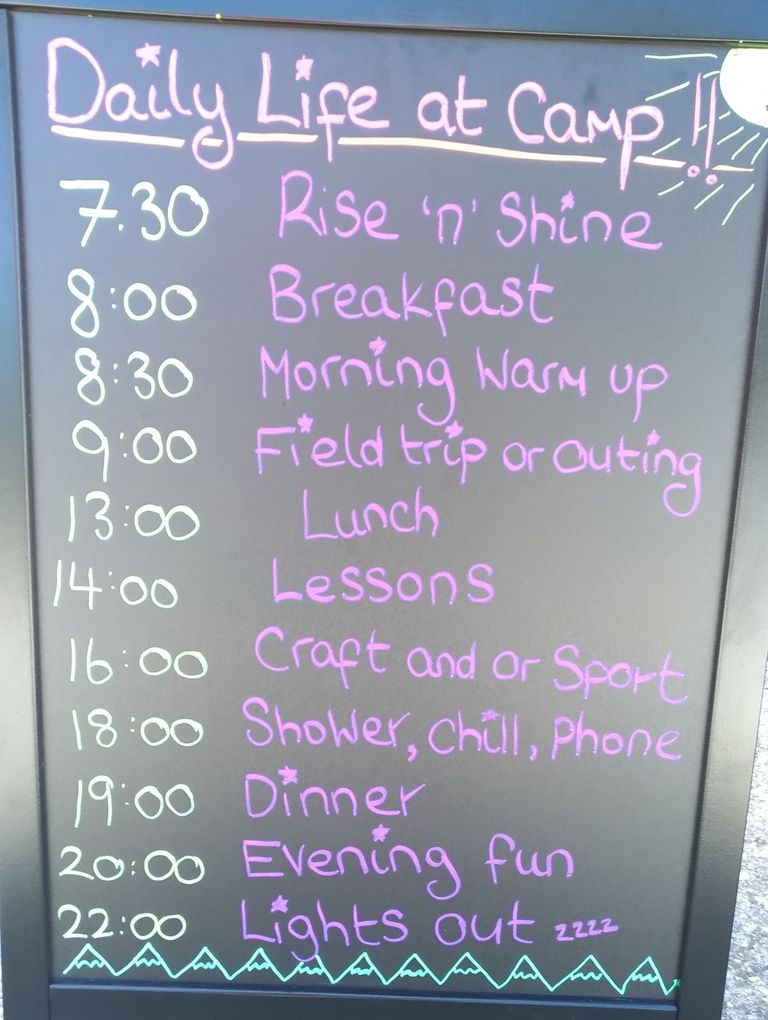 Daily Life at Camp !!
7.30 Rise 'n' Shine
8:00 Breakfast
8:30 Morning Warm up
9:00 Field trip or outing
13:00 Lunch
14:00 Lessons
16:00 Craft and or Sport
18:00 Shower, Chill, Phone
19:00 Dinner
20:00 Evening fun
22:00 Lights out zzzz